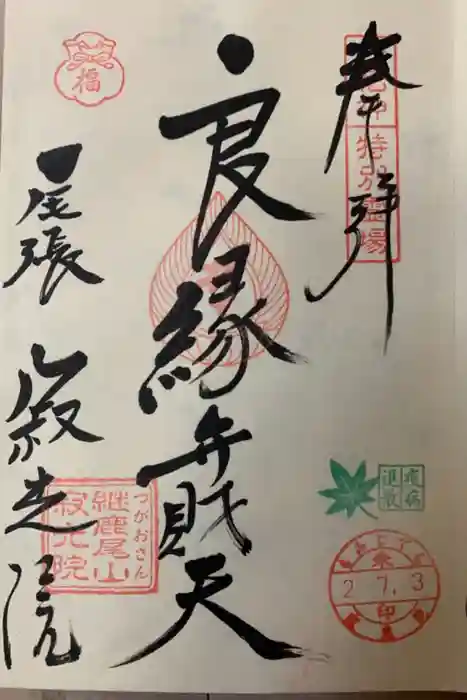 奉拝
特別霊場
良縁弁財天
尾張
寂光院
福
継鹿尾山
寂光院
つがおさん
疫病
退散
2.7.3
印